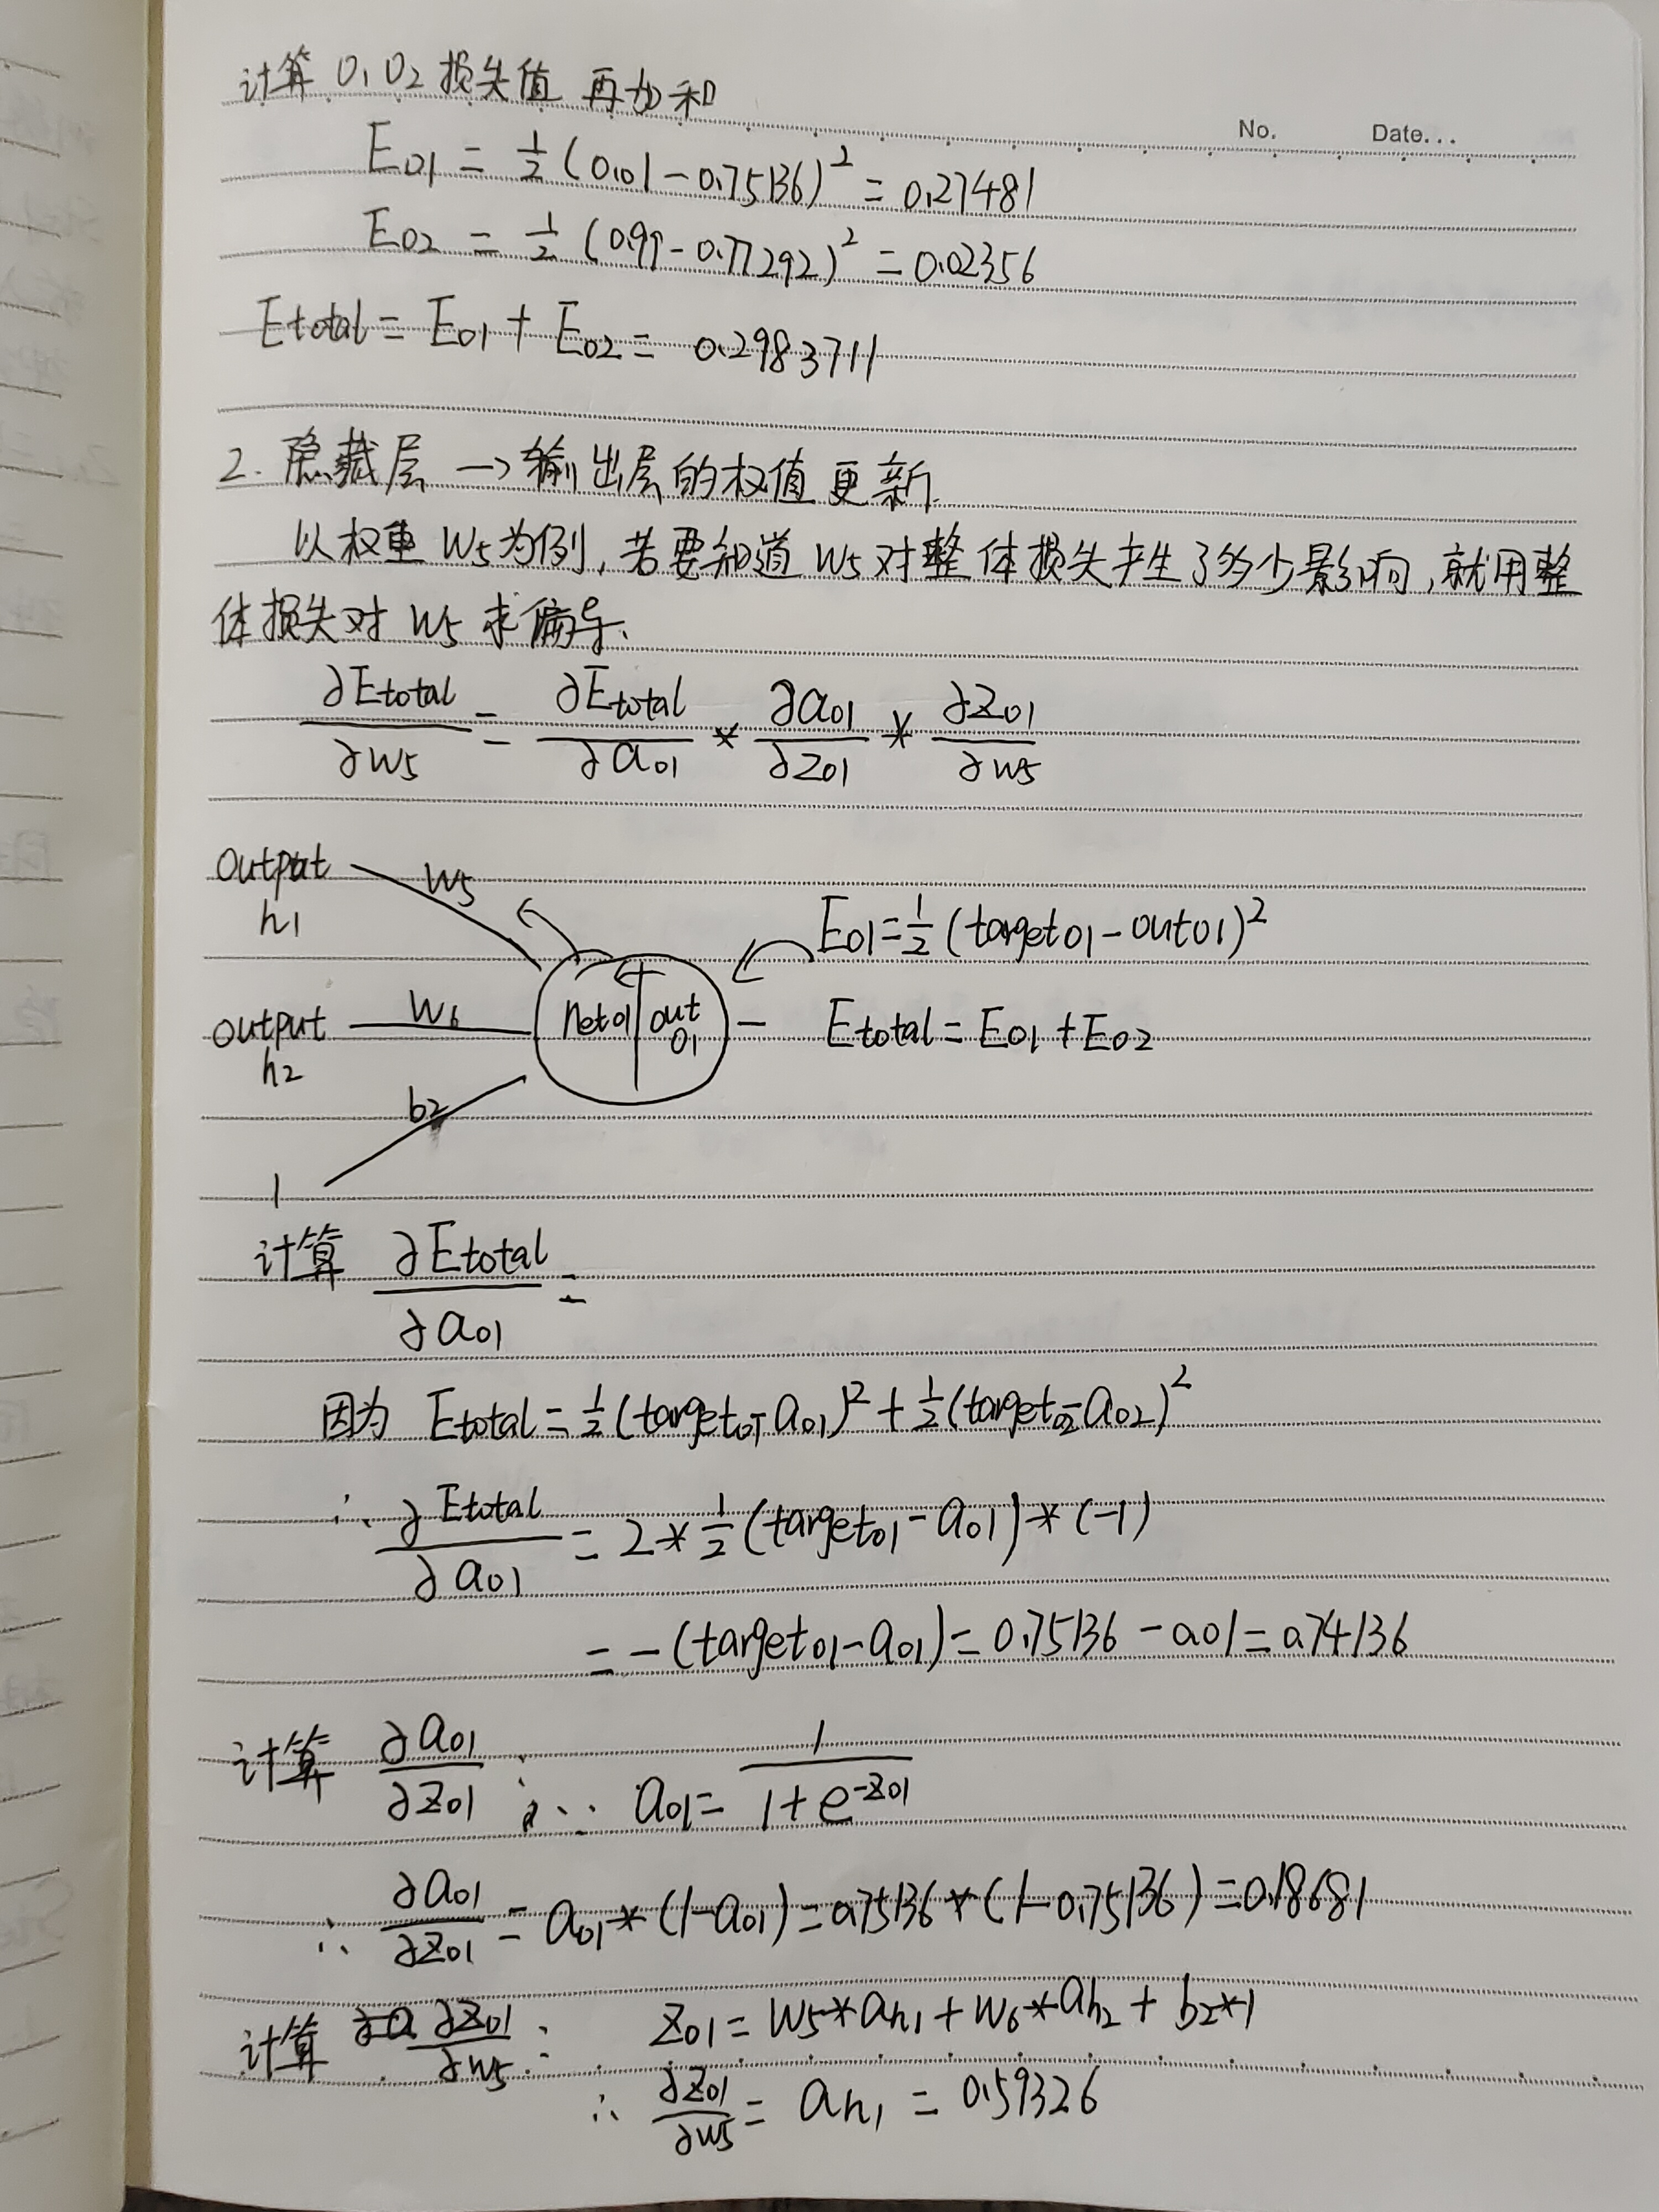 计算 O1 O2 损失值 再加和
No. Date...
E01 = 1/2 (0.01 - 0.75136)² = 0.27481
E02 = 1/2 (0.99 - 0.77292)² = 0.02356
Etotal = E01 + E02 = 0.2983711
2. 隐藏层 → 输出层的权值更新.
以权重 W5 为例, 若要知道 W5 对整体损失产生了多少影响, 就用整
体损失对 W5 求偏导.
∂Etotal/∂W5 = ∂Etotal/∂a01 * ∂a01/∂z01 * ∂z01/∂W5
output h1 W5
E01 = 1/2 (target01 - out01)²
output h2 W6 net01 out 01 — Etotal = E01 + E02
b2
1
计算 ∂Etotal/∂a01 =
因为 Etotal = 1/2 (target01 - a01)² + 1/2 (target02 - a02)²
∴ ∂Etotal/∂a01 = 2 * 1/2 (target01 - a01) * (-1)
= -(target01 - a01) = 0.75136 - 0.01 = 0.74136
计算 ∂a01/∂z01 : ∵ a01 = 1/(1 + e^-z01)
∴ ∂a01/∂z01 = a01 * (1 - a01) = 0.75136 * (1 - 0.75136) = 0.18681
计算 ∂z01/∂W5 : z01 = W5 * ah1 + W6 * ah2 + b2 * 1
∴ ∂z01/∂W5 = ah1 = 0.59326